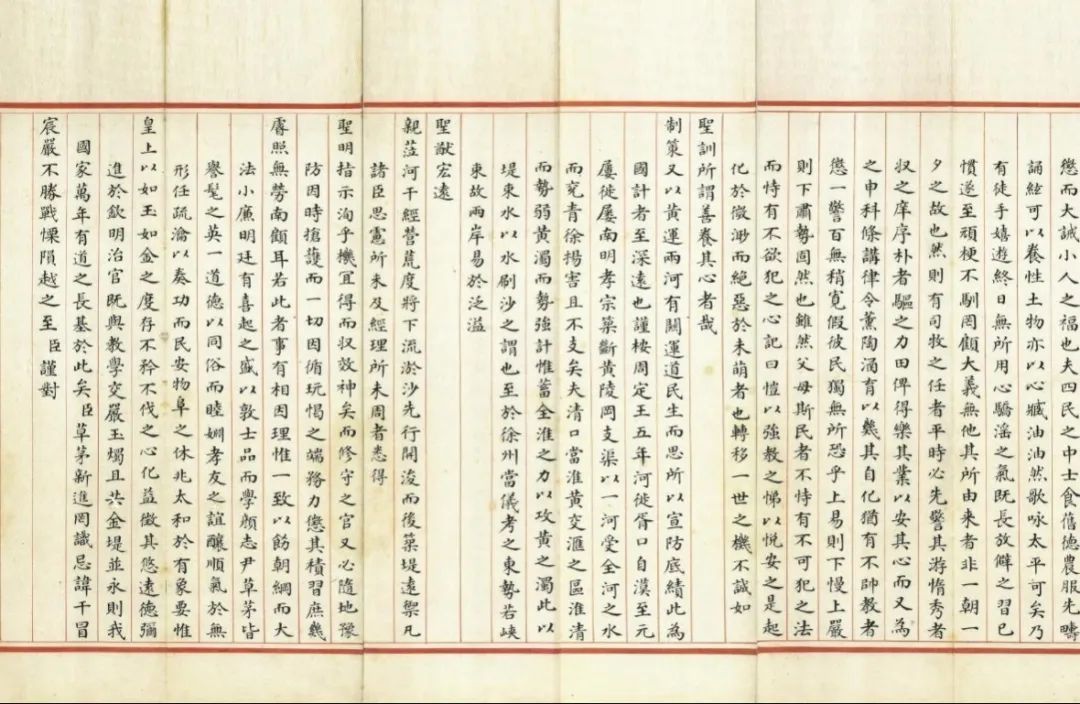 懲而大誡小人之福也夫四民之中士食舊德農服先疇
誦經可以養性土物亦以心臧油油然歌咏太平可矣乃
有徒手嬉遊終日無所用心驕滛之氣既長放僻之習已
慣遂至頑梗不馴罔顧大義無他其所由来者非一朝一
夕之故也然則有司牧之任者平時必先警其游惰秀者
収之庠序朴者驅之力田俾得樂其業以安其心而又為
之申科條講律令薰陶涵育以幾其自化猶有不帥教者
懲一警百無稍寛假彼民獨無所恐乎上易則下慢上嚴
則下肅勢固然也雖然父母斯民者不恃有不可犯之法
而恃有不欲犯之心記曰愷以強教之悌以悦安之是起
化於微渺而絕惡於未萌者也轉移一世之機不誠如
聖訓所謂善養其心者哉
制策又以黄運兩河有關運道民生而思所以宣防底績此為
國計者至深遠也謹桉周定王五年河徙胥口自漢至元
屢徙屢南明孝宗築斷黄陵岡支渠以一河受全河之水
而兖青徐揚害且不支矣夫清口當淮黄交滙之區淮清
而勢弱黄濁而勢強計惟蓄全淮之力以攻黄之濁此以
堤束水以水刷沙之謂也至於徐州當儀考之東勢若峽
束故兩岸易於泛溢
聖猷宏遠
親莅河干經營荒度將下流淤沙先行開浚而後築堤遠禦凡
諸臣思慮所未及經理所未周者悉得
聖明指示洵乎機宜得而収效神矣而修守之官又必隨地豫
防因時搶護而一切因循玩愒之端務力懲其積習庶幾
睿照無勞南顧耳若此者事有相因理惟一致以飭朝綱而大
法小廉明廷有喜起之盛以敦士品而學顔志尹草茅皆
譽髦之英一道德以同俗而睦婣孝友之誼釀順氣於無
形任疏瀹以奏功而民安物阜之休兆太和於有象要惟
皇上以如玉如金之度存不矜不伐之心化益徵其悠遠德彌
進於欽明治官既與教學交嚴玉燭且共金堤並永則我
國家萬年有道之長基於此矣臣草茅新進罔識忌諱干冒
宸嚴不勝戰慄隕越之至臣謹對